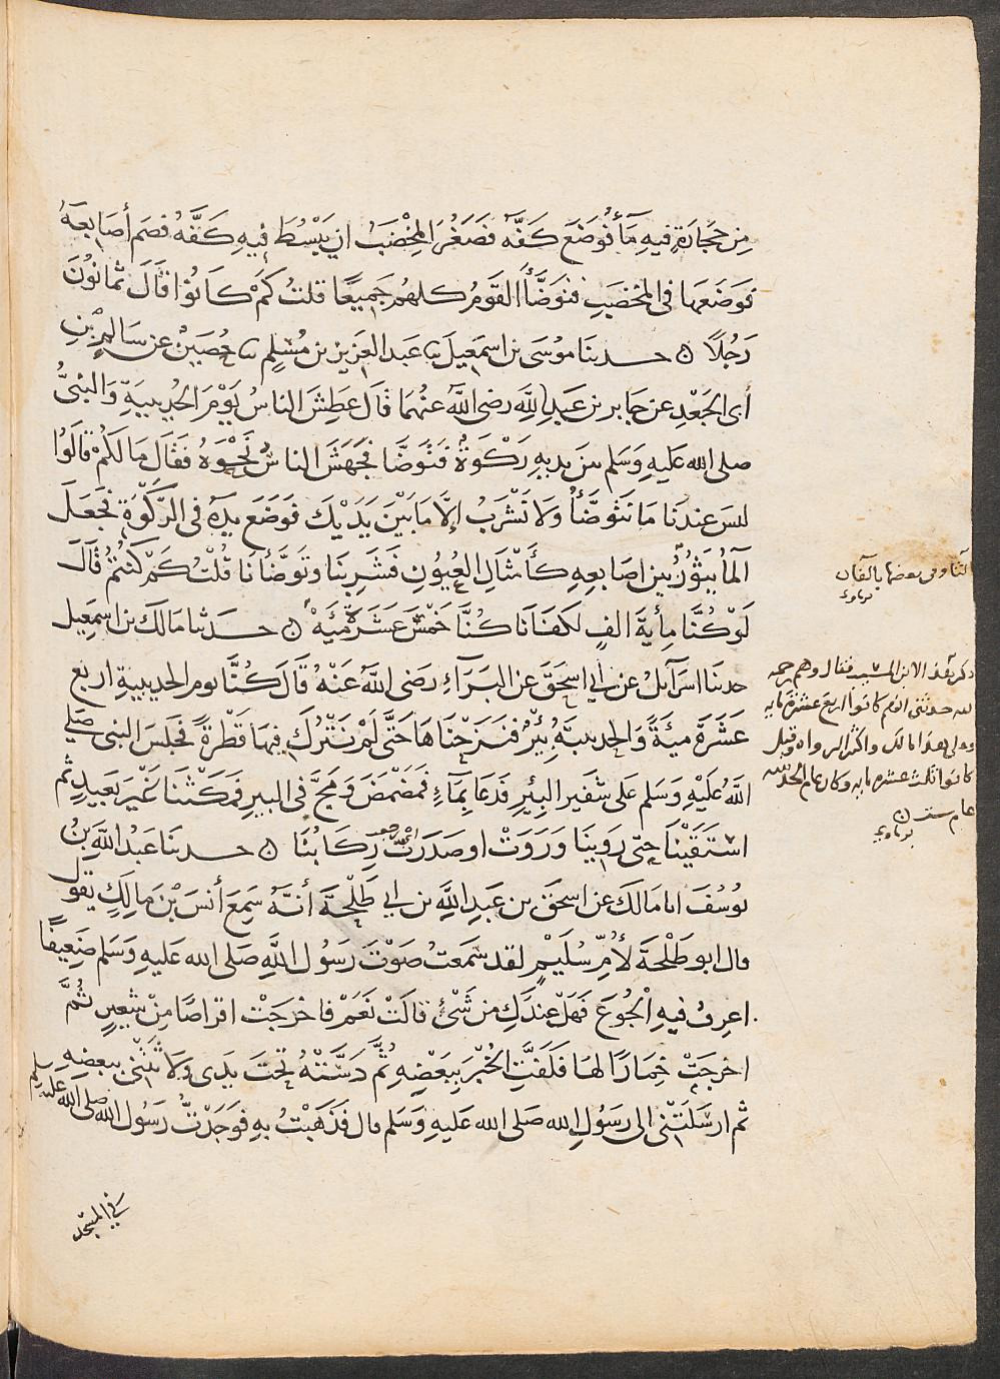 مِن حِجَارَةٍ فيهِ مَآءٌ فُوضَعَ كَفَّهُ فَصَغُرَ المِخْضَبُ ان يَبْسُطَ فيهِ كَفَّهُ فضم أصَابِعَهُ
فوَضَعَها فى المخضَبِ فتَوَضَّأَ القَومُ كلهُم جَمِيعًا قلتُ كَمْ كَانُوا قَالَ ثمانُونَ
رَجُلًا ۞ حدثنا موُسَى بن اسمَعِيلَ ثنا عَبد العَزيزِ بن مُسْلِمٍ ثنا حُصَينْ عن سَالِمِ بْنِ
أبى الجَعْدِ عن جَابر بن عَبدِ اللَّهِ رضى اللَّه عنهُما قَالَ عَطِشَ الناسُ يَوْمَ الحُدَيبيَةِ وَالنبىُّ
صلى الله عَليهِ وَسَلم بينَ يديهِ رَكْوَةٌ فَتَوضَّا فجَهَشَ الناسُ نَحْوَهُ فقَالَ مَا لَكُمْ قَالَوُا
ليسَ عِندَنَا مَا نتَوضَّأُ وَلَا نَشْرَبُ إلَّا مَا بَيْنَ يَدَيْكَ فوَضَع يدَهُ فى الرَّكْوَةِ فجَعَلَ
المآُ يَثوُرُ بين اصَابعِهِ كَأَمْثَالِ العُيُونِ فشَرِبنَا وتَوضَّأنَا قُلْتُ كَمْ كنتُمْ قَالَ
لَوْ كُنَّا مِأيةَ الفٍ لَكفَانَا كُنَّا خَمْسَ عَشَرَةَ مِيَةً ۞ حدثنا مالك بن اسمَعِيل
حدثنا اسرَآئلُ عن أبى اسحَقَ عن البَرَآءِ رَضى اللَّهُ عَنْهُ قَالَ كُنَّا يوم الحديبيةِ اربع
عَشَرَةَ مئَةً وَالحديبيَةُ بِئرٌ فنزَحْنَاهَا حَتَّى لَمْ نَتْرُكْ فيهَا قَطْرةً فجلسَ النبى صَلى
اللَّهُ عَلَيْهِ وَسَلم عَلى شَفيرِ البِئرِ فَدَعَا بِمَآءٍ فمَضْمَضَ وَمَجَّ فى البيرِ فمَكثْنَا غَيْرَ بَعِيدٍ ثم
استَقَيْنَا حتى رَوِينَا وَرَوَتْ او صَدَرَتْ رِكَابُنَا ۞ حدثنا عَبدُ اللَّهِ بنُ
يُوسُفَ انا مَالكَ عن اسحَقَ بن عَبدِ اللَّهِ بن أبى طَلْحَةَ أنَّهُ سَمِعَ أنَسَ بْنَ مَالِكٍ يَقُولُ
قال ابو طَلْحَةَ لأُمِّ سُلَيْمٍ لقد سَمعتُ صَوْتَ رَسُولِ اللَّهِ صَلى الله عَليهِ وَسَلم ضَعِيفًا
اعرِفُ فيهِ الْجُوعَ فَهَلْ عِندَكِ من شَىْءٍ قالَتْ نَعَمْ فاخرَجَتْ اقراصًا مِنْ شعِيرٍ ثُمَّ
اخرجَتْ خِمَارًا لهَا فَلَفتِ الخُبْزَ بِبَعْضِهِ ثُمَّ دَسَّتْهُ تحتَ يَدِى وَلَاثَتْنى ببعضِهِ
ثم ارْسَلَتْنى الى رَسُولِ الله صَلى الله عَليهِ وَسَلم قال فَذَهَبْتُ بهِ فوَجَدْتُ رَسُولَ الله صلى الله عليه وسلم
فى المسْجد
وفى بعضها بالفآء
برماوى
فقال وهم رحمه
الله حدثنى انهم كانوا اربع عشرة مايه
مالك واكثر الرواه وقيل
كانوا ثلث عشره مايه وكان عام الحديبيه
عام ست ۞
برماوى